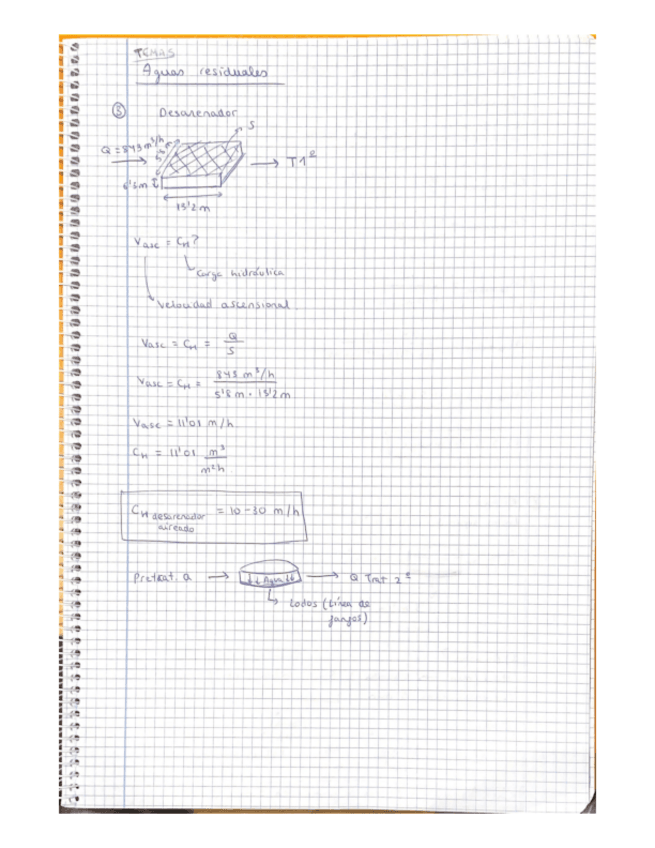 TEMA5
Aguas residuales
③ Desarenador
Q = 843 m³/h
5'8 m
S
T1º
15'2 m
Vasc = CH?
Carga hidráulica
Velocidad ascensional.
Vasc = CH = Q / S
Vasc = CH = 843 m³/h / 5'8 m · 15'2 m
Vasc = 11'01 m/h
CH = 11'01 m³ / m²h
CH desarenador = 10-30 m/h
aireado
Pretrat. a → ↓↓ Agua ↓↓ → Q Trat 2º
Lodos (Línea de
fangos)